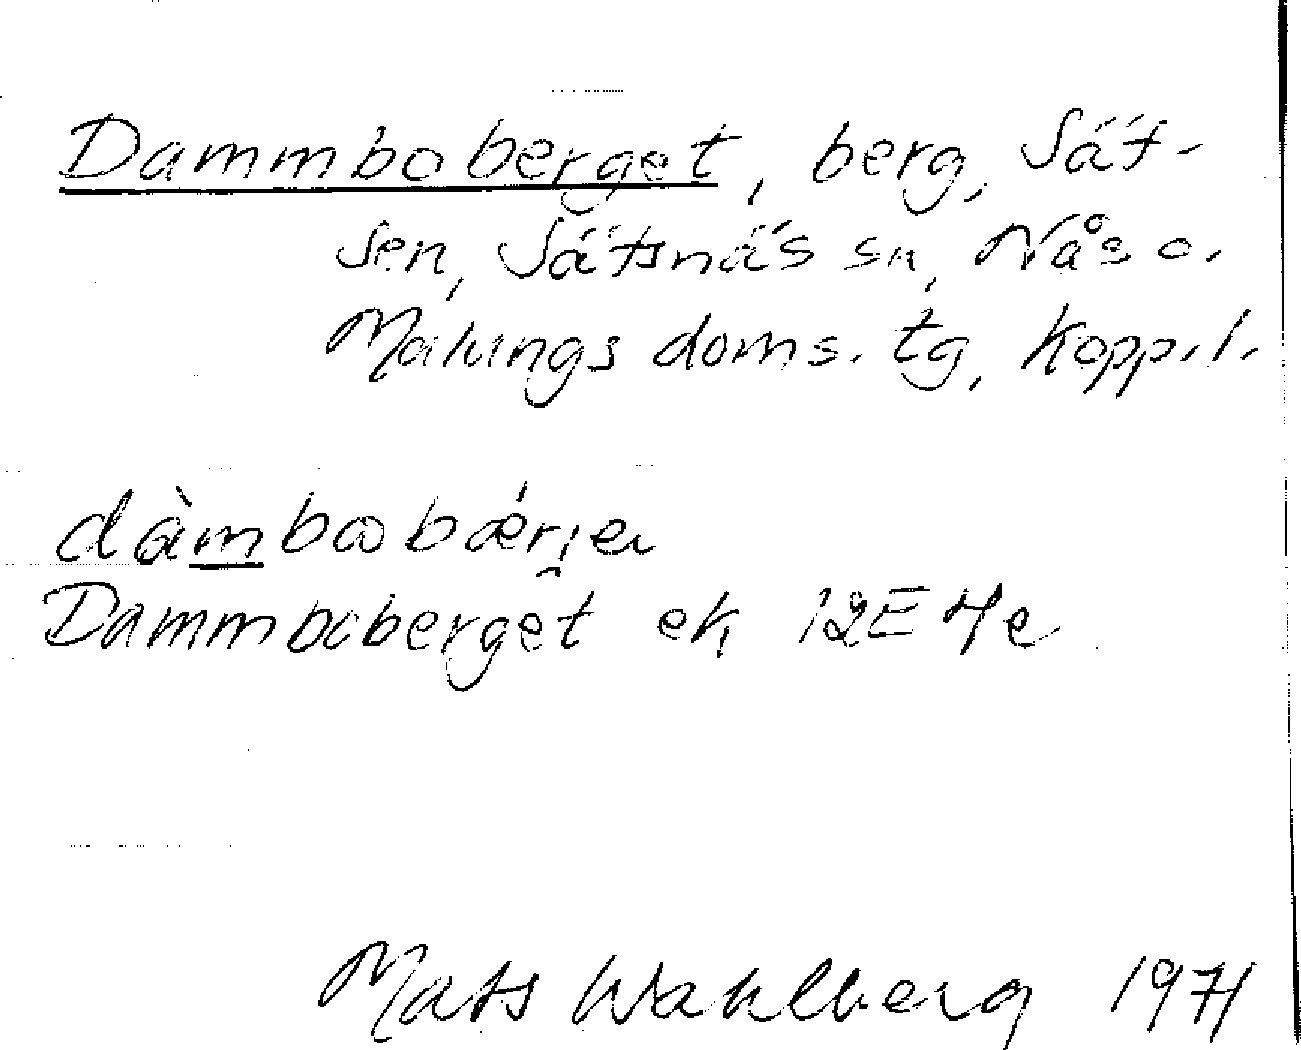 Dammboberget, berg, Sät-
sen, Säfsnäs sn, Nås o.
Malungs doms. tg, Kopp. l.
dàmbωbǽrjeɩ
Dammboberget ek 12E 4e
Mats Wahlberg 1971